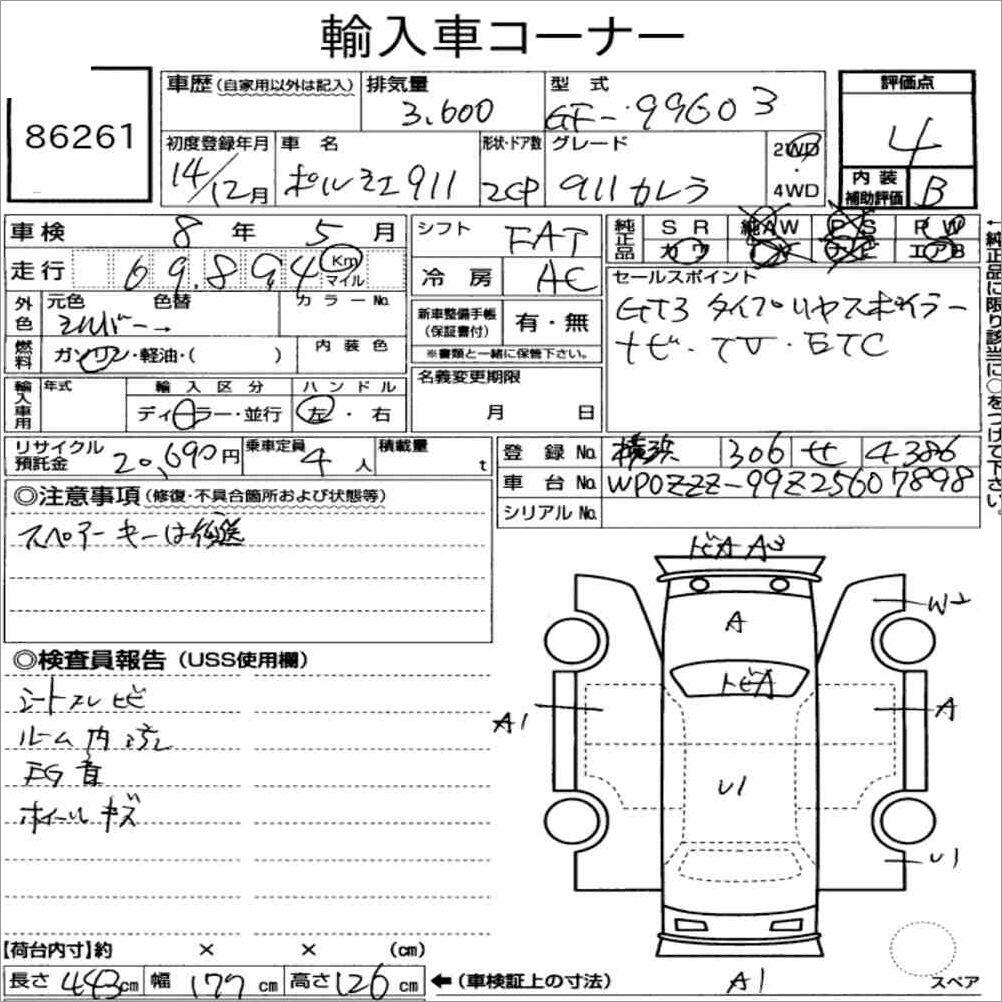 輸入車コーナー
86261
車歴(自家用以外は記入) 排気量 3,600 型式 GF-99603 評価点 4
初度登録年月 14/12月 車名 ポルシェ911 形状・ドア数 2CP グレード 911カレラ 2WD 4WD 内装補助評価 B
車検 8年 5月 シフト FAT 純正品 SR 純AW PS PW
走行 69,894 Km マイル 冷房 AC カワ エアB
外色 元色 色替 カラーNo. シルバー→ 新車整備手帳(保証書付) 有・無 セールスポイント
GT3タイプリヤスポイラー
ナビ・TV・ETC
燃料 ガソリン・軽油・( ) 内装色 ※書類と一緒に保管下さい。
輸入車用 年式 輸入区分 ハンドル 名義変更期限
ディーラー・並行 左・右 月 日
←純正品に限り該当に○をつけて下さい。
リサイクル預託金 20,690円 乗車定員 4人 積載量 t 登録No. 横浜 306 せ 4386
車台No. WP0ZZZ-99Z2S607898
シリアルNo.
◎注意事項(修復・不具合箇所および状態等)
スペアーキーは後送
トビA A3
W2
A
トビA
◎検査員報告(USS使用欄)
シートスレ ヒビ
A1
A
ルーム内汚レ
EG音
U1
ホイールキズ
U1
【荷台内寸】約 × × (cm)
長さ 443cm 幅 177cm 高さ 126cm ←(車検証上の寸法) A1 スペア